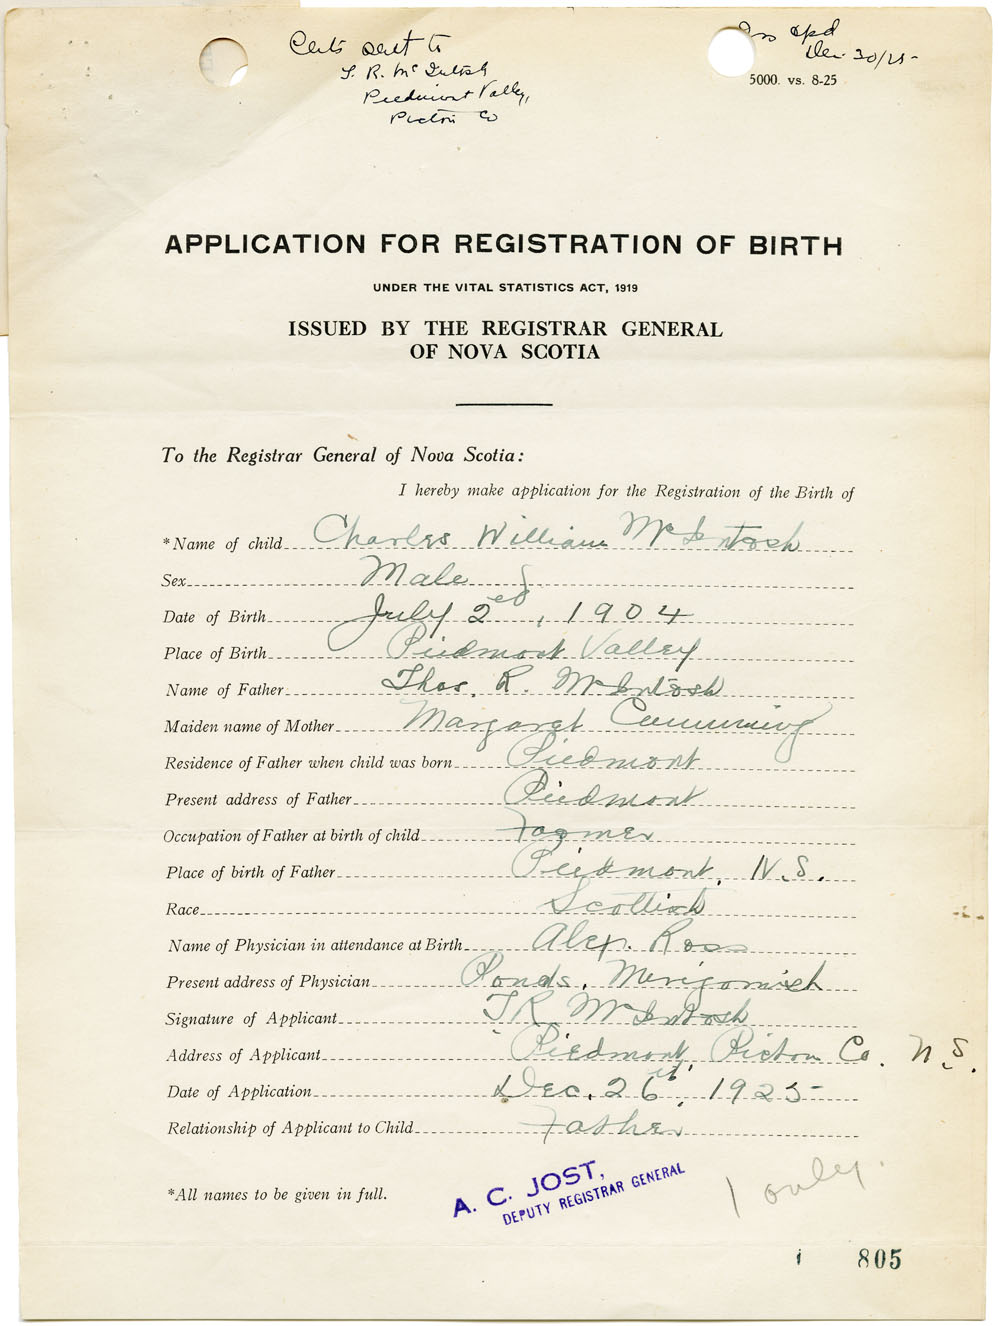 Certs sent to
T. R. McIntosh
Piedmont Valley,
Pictou Co
Iss &pd
Dec 30/25-
5000. vs. 8-25
APPLICATION FOR REGISTRATION OF BIRTH
UNDER THE VITAL STATISTICS ACT, 1919
ISSUED BY THE REGISTRAR GENERAL
OF NOVA SCOTIA
To the Registrar General of Nova Scotia:
I hereby make application for the Registration of the Birth of
*Name of child Charles William McIntosh
Sex Male
Date of Birth July 2ed, 1904
Place of Birth Piedmont Valley
Name of Father Thos. R. McIntosh
Maiden name of Mother Margaret Cumming
Residence of Father when child was born Piedmont
Present address of Father Piedmont
Occupation of Father at birth of child Farmer
Place of birth of Father Piedmont, N.S.
Race Scottish
Name of Physician in attendance at Birth Alex. Ross
Present address of Physician Ponds, Merigomish
Signature of Applicant T R McIntosh
Address of Applicant Piedmont, Pictou Co. N.S.
Date of Application Dec. 26th, 1925-
Relationship of Applicant to Child Father
*All names to be given in full.
A. C. JOST,
DEPUTY REGISTRAR GENERAL
1 only.
805